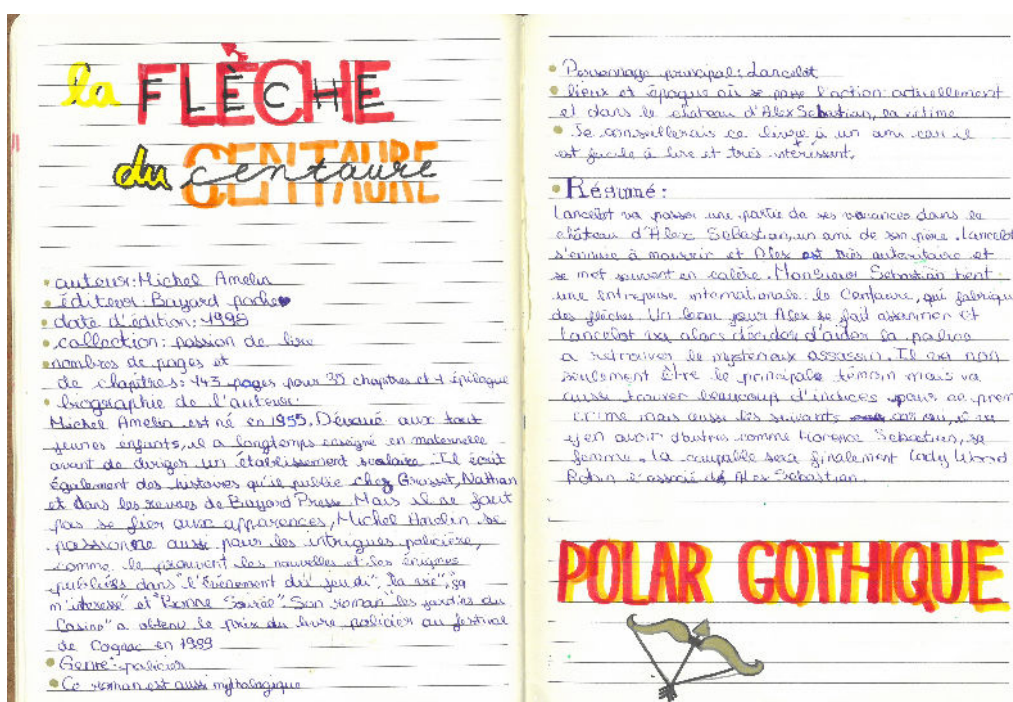 la FLÈCHE
du CENTAURE
centaure
• auteur: Michel Amelin
• éditeur: Bayard poche
• date d'édition: 1998
• collection: passion de lire
• nombres de pages et
de chapitres: 143 pages pour 35 chapitres et 1 épilogue
• biographie de l'auteur:
Michel Amelin est né en 1955. Dévoué aux tout
jeunes enfants, il a longtemps enseigné en maternelle
avant de diriger un établissement scolaire. Il écrit
également des histoires qu'il publie chez Grasset, Nathan
et dans les revues de Bayard Presse. Mais il ne faut
pas se fier aux apparences, Michel Amelin se
passionne aussi pour les intrigues policière,
comme le prouvent les nouvelles et les énigmes
publiés dans "l'Événement du jeudi" "la vie", "ça
m'interesse" et "Bonne Soirée". Son roman "les jardins du
Casino" a obtenu le prix du livre policier au festival
de Cognac en 1989
• Genre: policier
• Ce roman est aussi mythologique
• Personnage principal: Lancelot
• lieux et époque où se passe l'action actuellement
et dans le château d'Alex Sebastian, sa victime
• Je conseillerais ce livre à un ami car il
est facile à lire et très intéressant.
• Résumé:
Lancelot va passer une partie de ses vacances dans le
château d'Alex Sebastian, un ami de son père. Lancelot
s'ennuie à mourrir et Alex est très autoritaire et
se met souvent en colère. Monsieur Sebastian tient
une entreprise internationale: le Centaure, qui fabrique
des flèches. Un beau jour Alex se fait assassiner et
Lancelot va alors décider d'aider la police
a retrouver le mystérieux assassin. Il va non
seulement être le principale témoin mais va
aussi trouver beaucoup d'indices pour ce prem
crime mais aussi les suivants car oui, il va
y en avoir d'autres comme Florence Sebastian, sa
femme. La coupable sera finalement Lady Wood
Robin l'associé d'Alex Sebastian.
POLAR GOTHIQUE